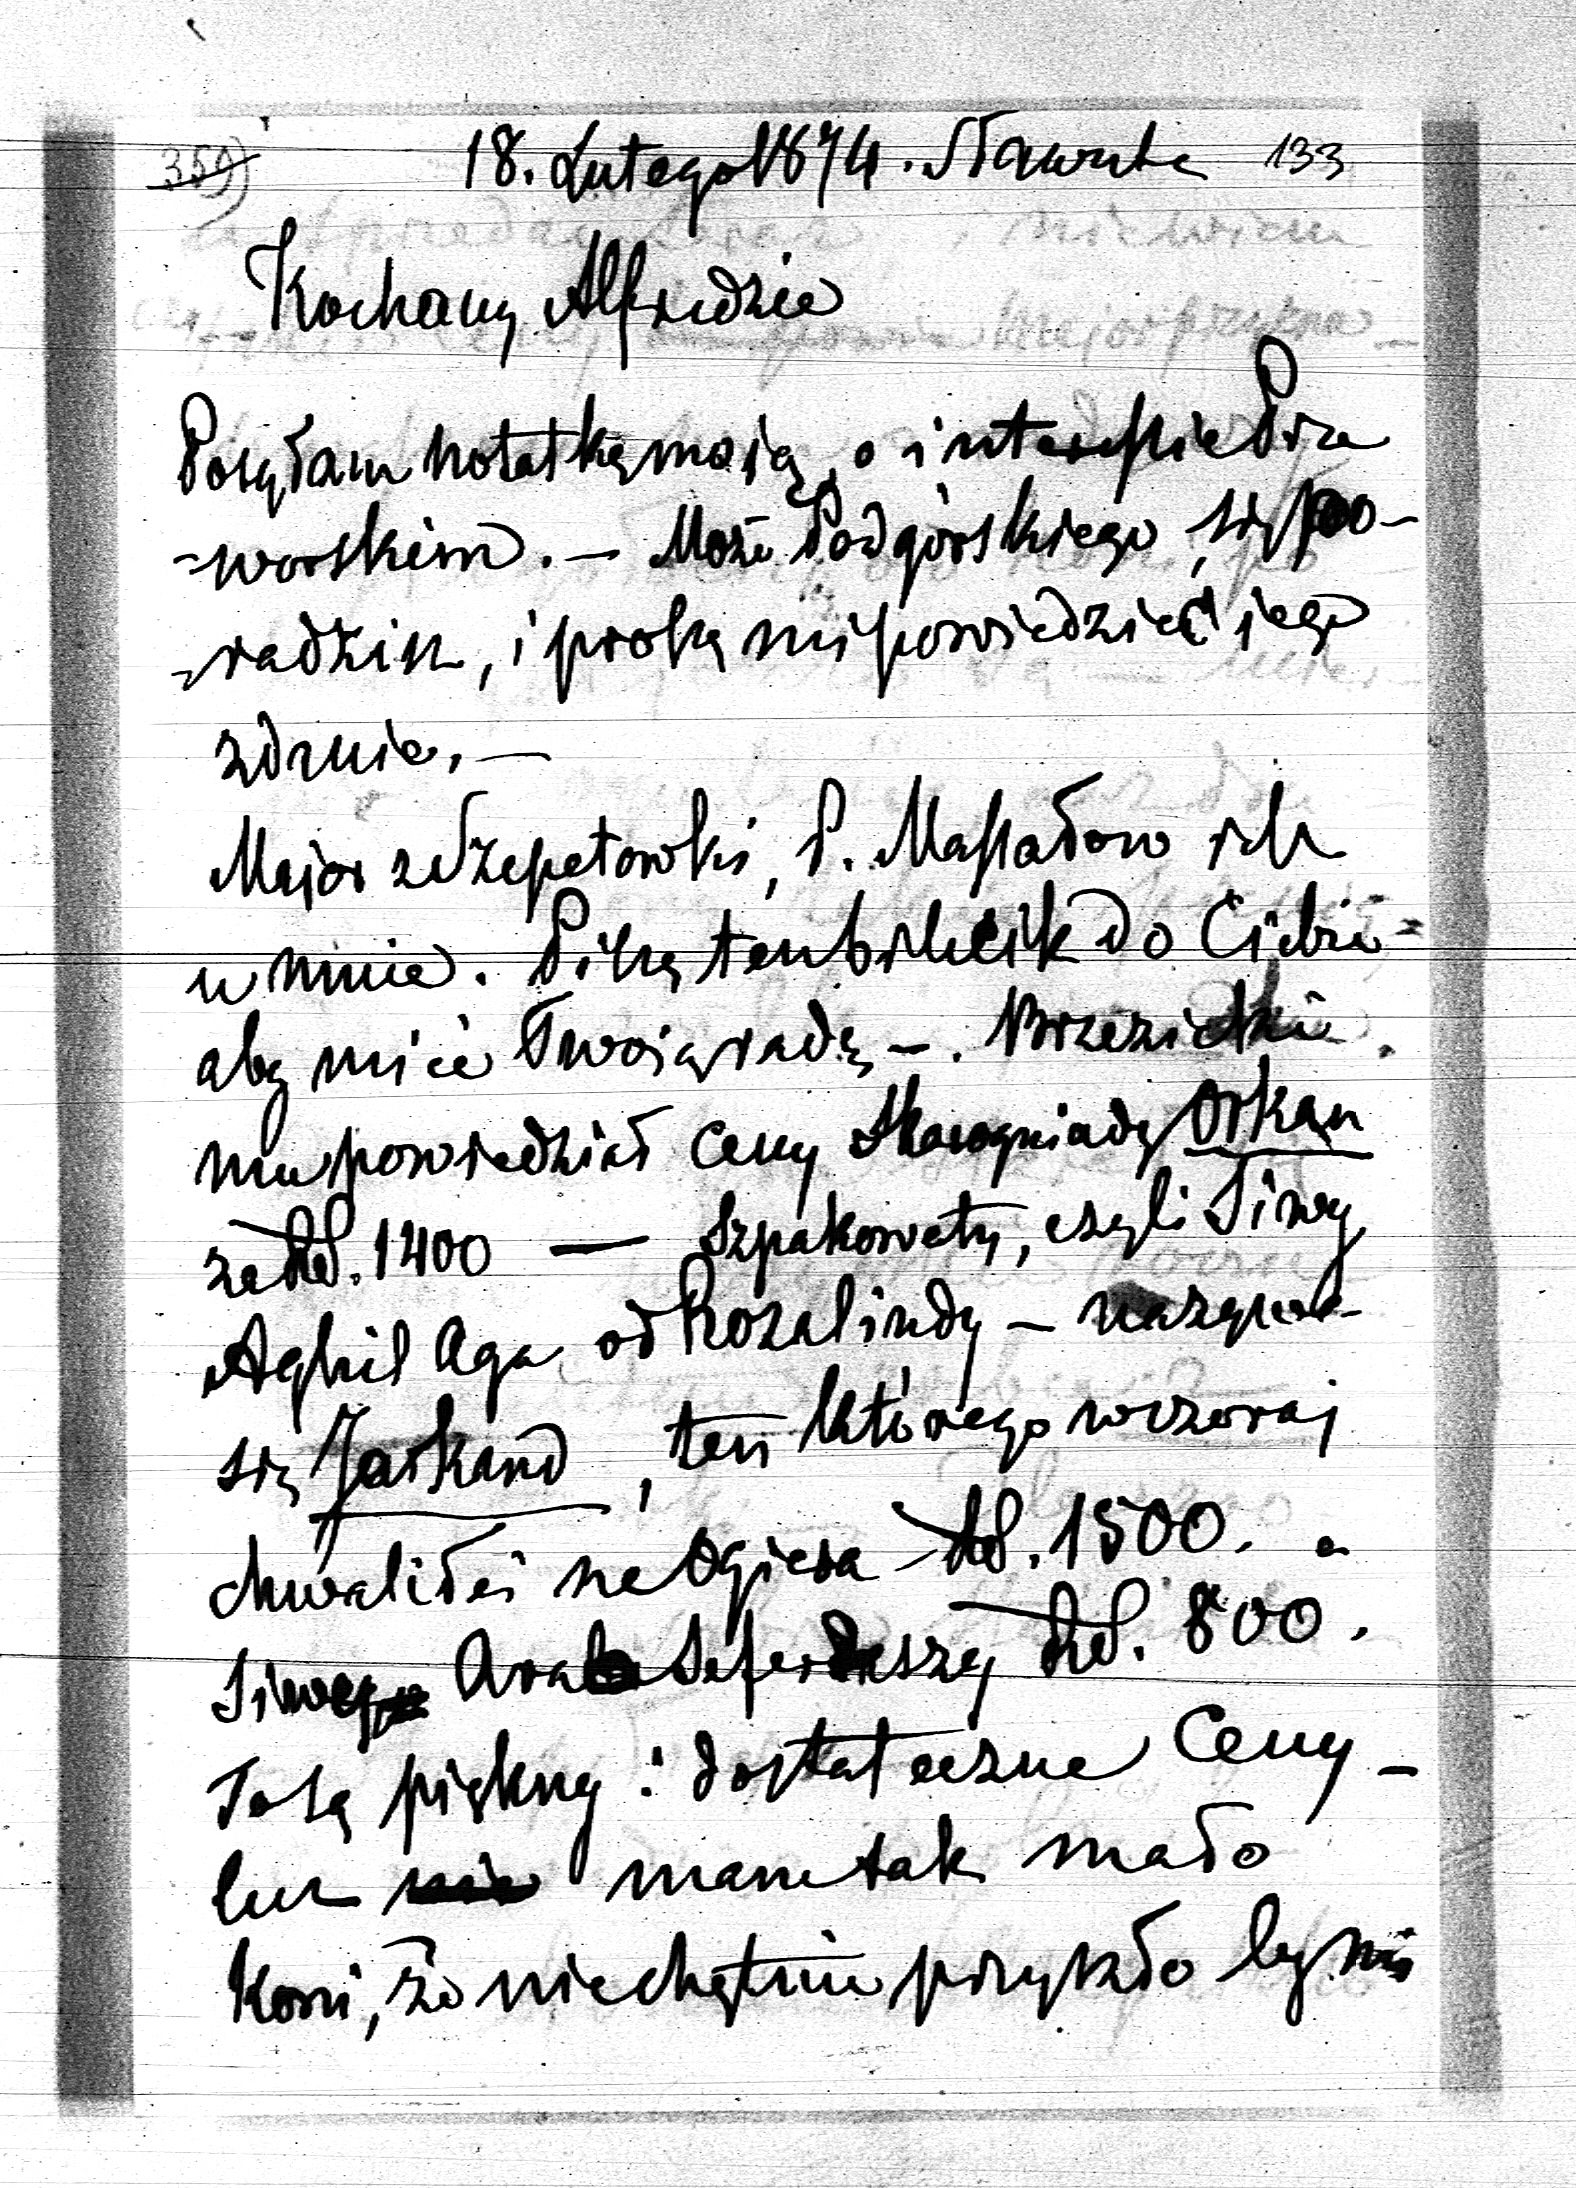 359) 18. Lutego 1874. Sławuta 133
Kochany Alfredzie
Posyłam notatkę moją, o interessie Prze
-worskim. — Może Podgórskiego, się po-
-radzisz, i proszę mi powiedzieć jego
zdanie. —
Major z Szepetowki, P. Massałow jest
u mnie. Piszę ten bilecik do Ciebie
aby mieć Twoją radę —. Brzezicki
mu powiedział Ceny Skarogniady Orkan
za Rbl. 1400 — Szpakowaty, czyli Siwy
Aghil Aga od Rozalindy — nazywa
się Jarkand, ten którego wczoraj
chwaliłeś na Ogiera Rbl. 1500. a
Siwy Arab Seferpaszy Rbl. 800.
To są piękny i dostateczne Ceny —
lecz nie mam tak mało
Koni, że niechętnie przyszło by mi